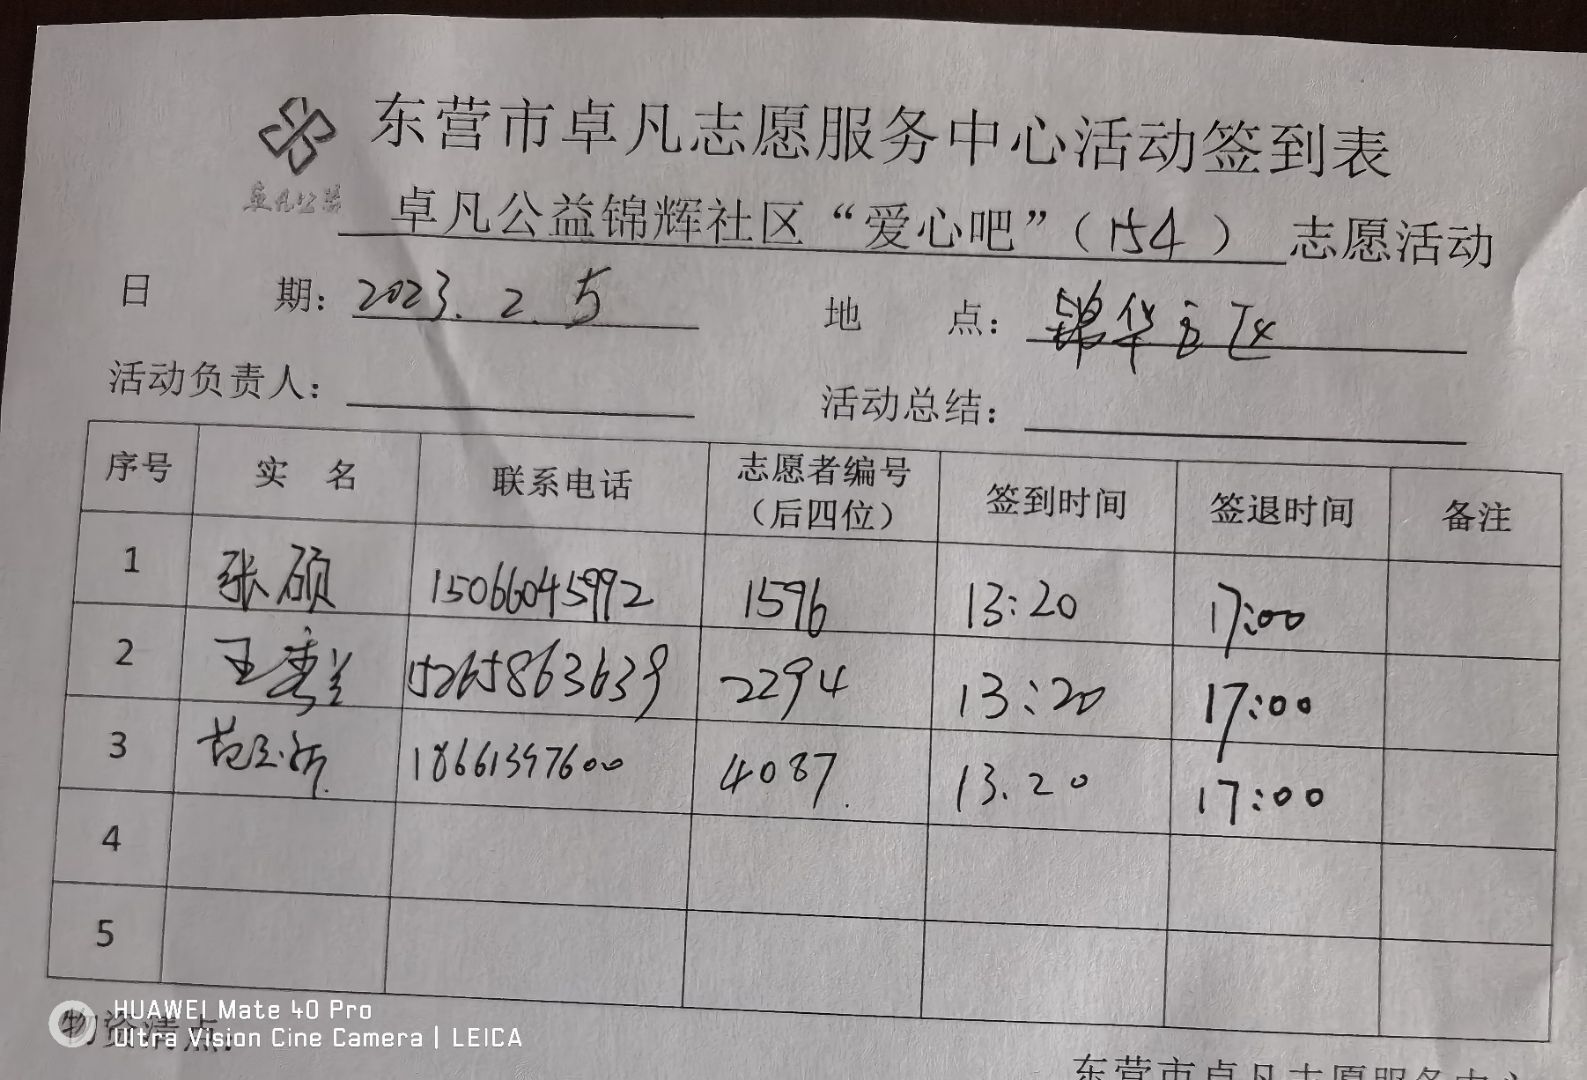 东营市卓凡志愿服务中心活动签到表
卓凡公益
卓凡公益锦辉社区“爱心吧”（154）志愿活动
日 期：2023.2.5 地 点：锦华社区
活动负责人： 活动总结：
序号 实 名 联系电话 志愿者编号（后四位） 签到时间 签退时间 备注
1 张硕 15066045992 1596 13:20 17:00
2 王秀兰 15265863639 2294 13:20 17:00
3 18661397600 4087. 13.20 17:00
4
5
物资清点：
HUAWEI Mate 40 Pro
Ultra Vision Cine Camera | LEICA
东营市卓凡志愿服务中心